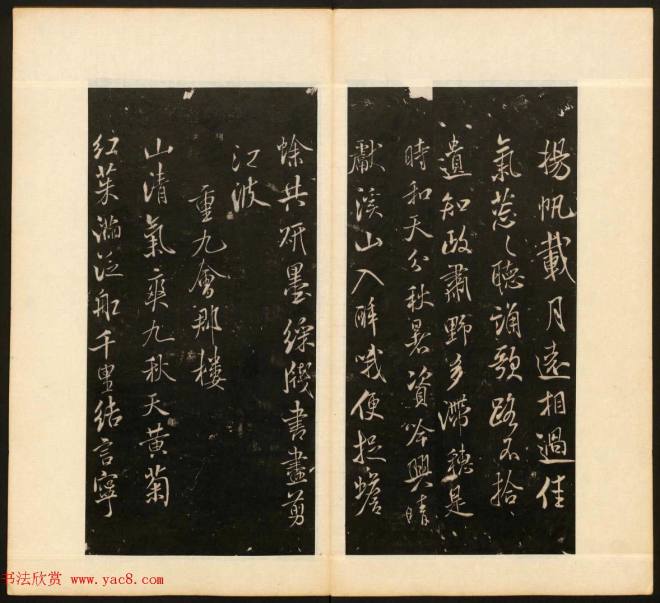 揚帆載月遠相過佳
氣葱〻聽誦歌路不拾
遺知政肅野多滯穗是
時和天分秋暑資吟興晴
獻溪山入醉哦便捉蟾
蜍共研墨綵牋書盡剪
江波
重九會郡樓
山清氣爽九秋天黄菊
紅茱滿泛船千里結言寧
书法欣赏 www.yac8.com